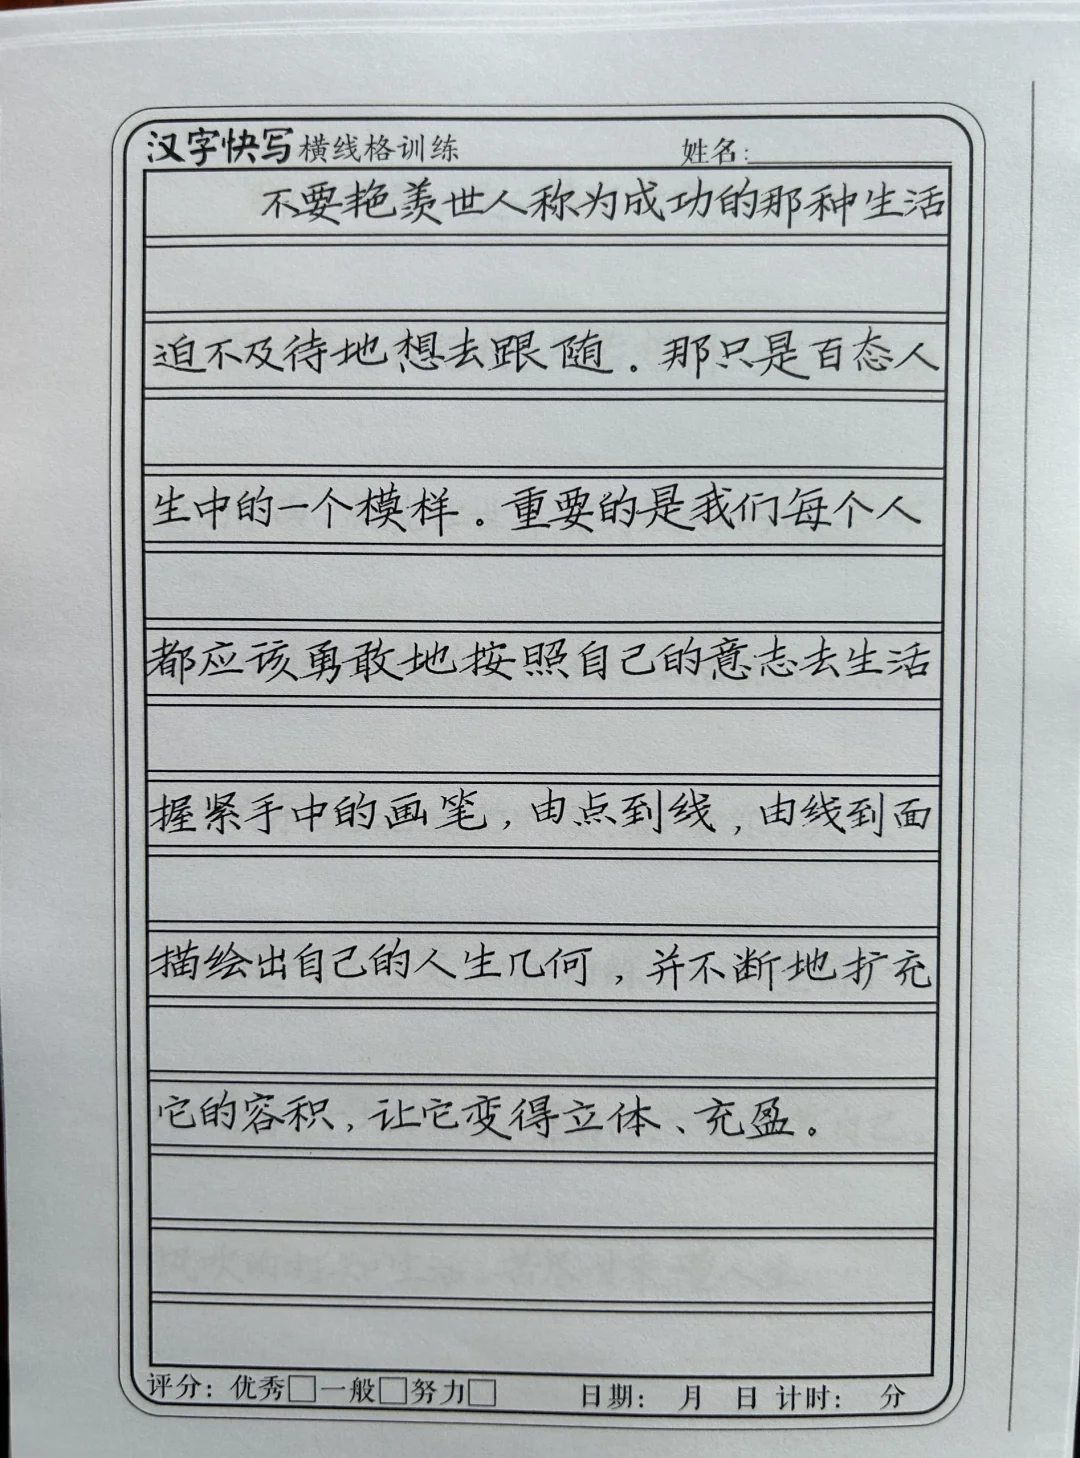 汉字快写横线格训练 姓名:
不要艳羡世人称为成功的那种生活
迫不及待地想去跟随。那只是百态人
生中的一个模样。重要的是我们每个人
都应该勇敢地按照自己的意志去生活
握紧手中的画笔,由点到线,由线到面
描绘出自己的人生几何,并不断地扩充
它的容积,让它变得立体、充盈。
评分: 优秀□一般□努力□ 日期: 月 日 计时: 分